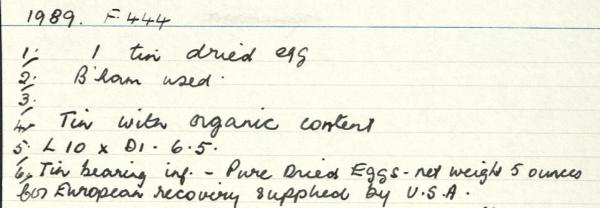 1989. F.444
1. 1 tin dried egg
2. B'ham used.
3.
4. Tin with organic content
5. L 10 x D1. 6.5.
6. Tin bearing inf. - Pure Dried Eggs - net weight 5 ounces
for European recovery supplied by U.S.A.